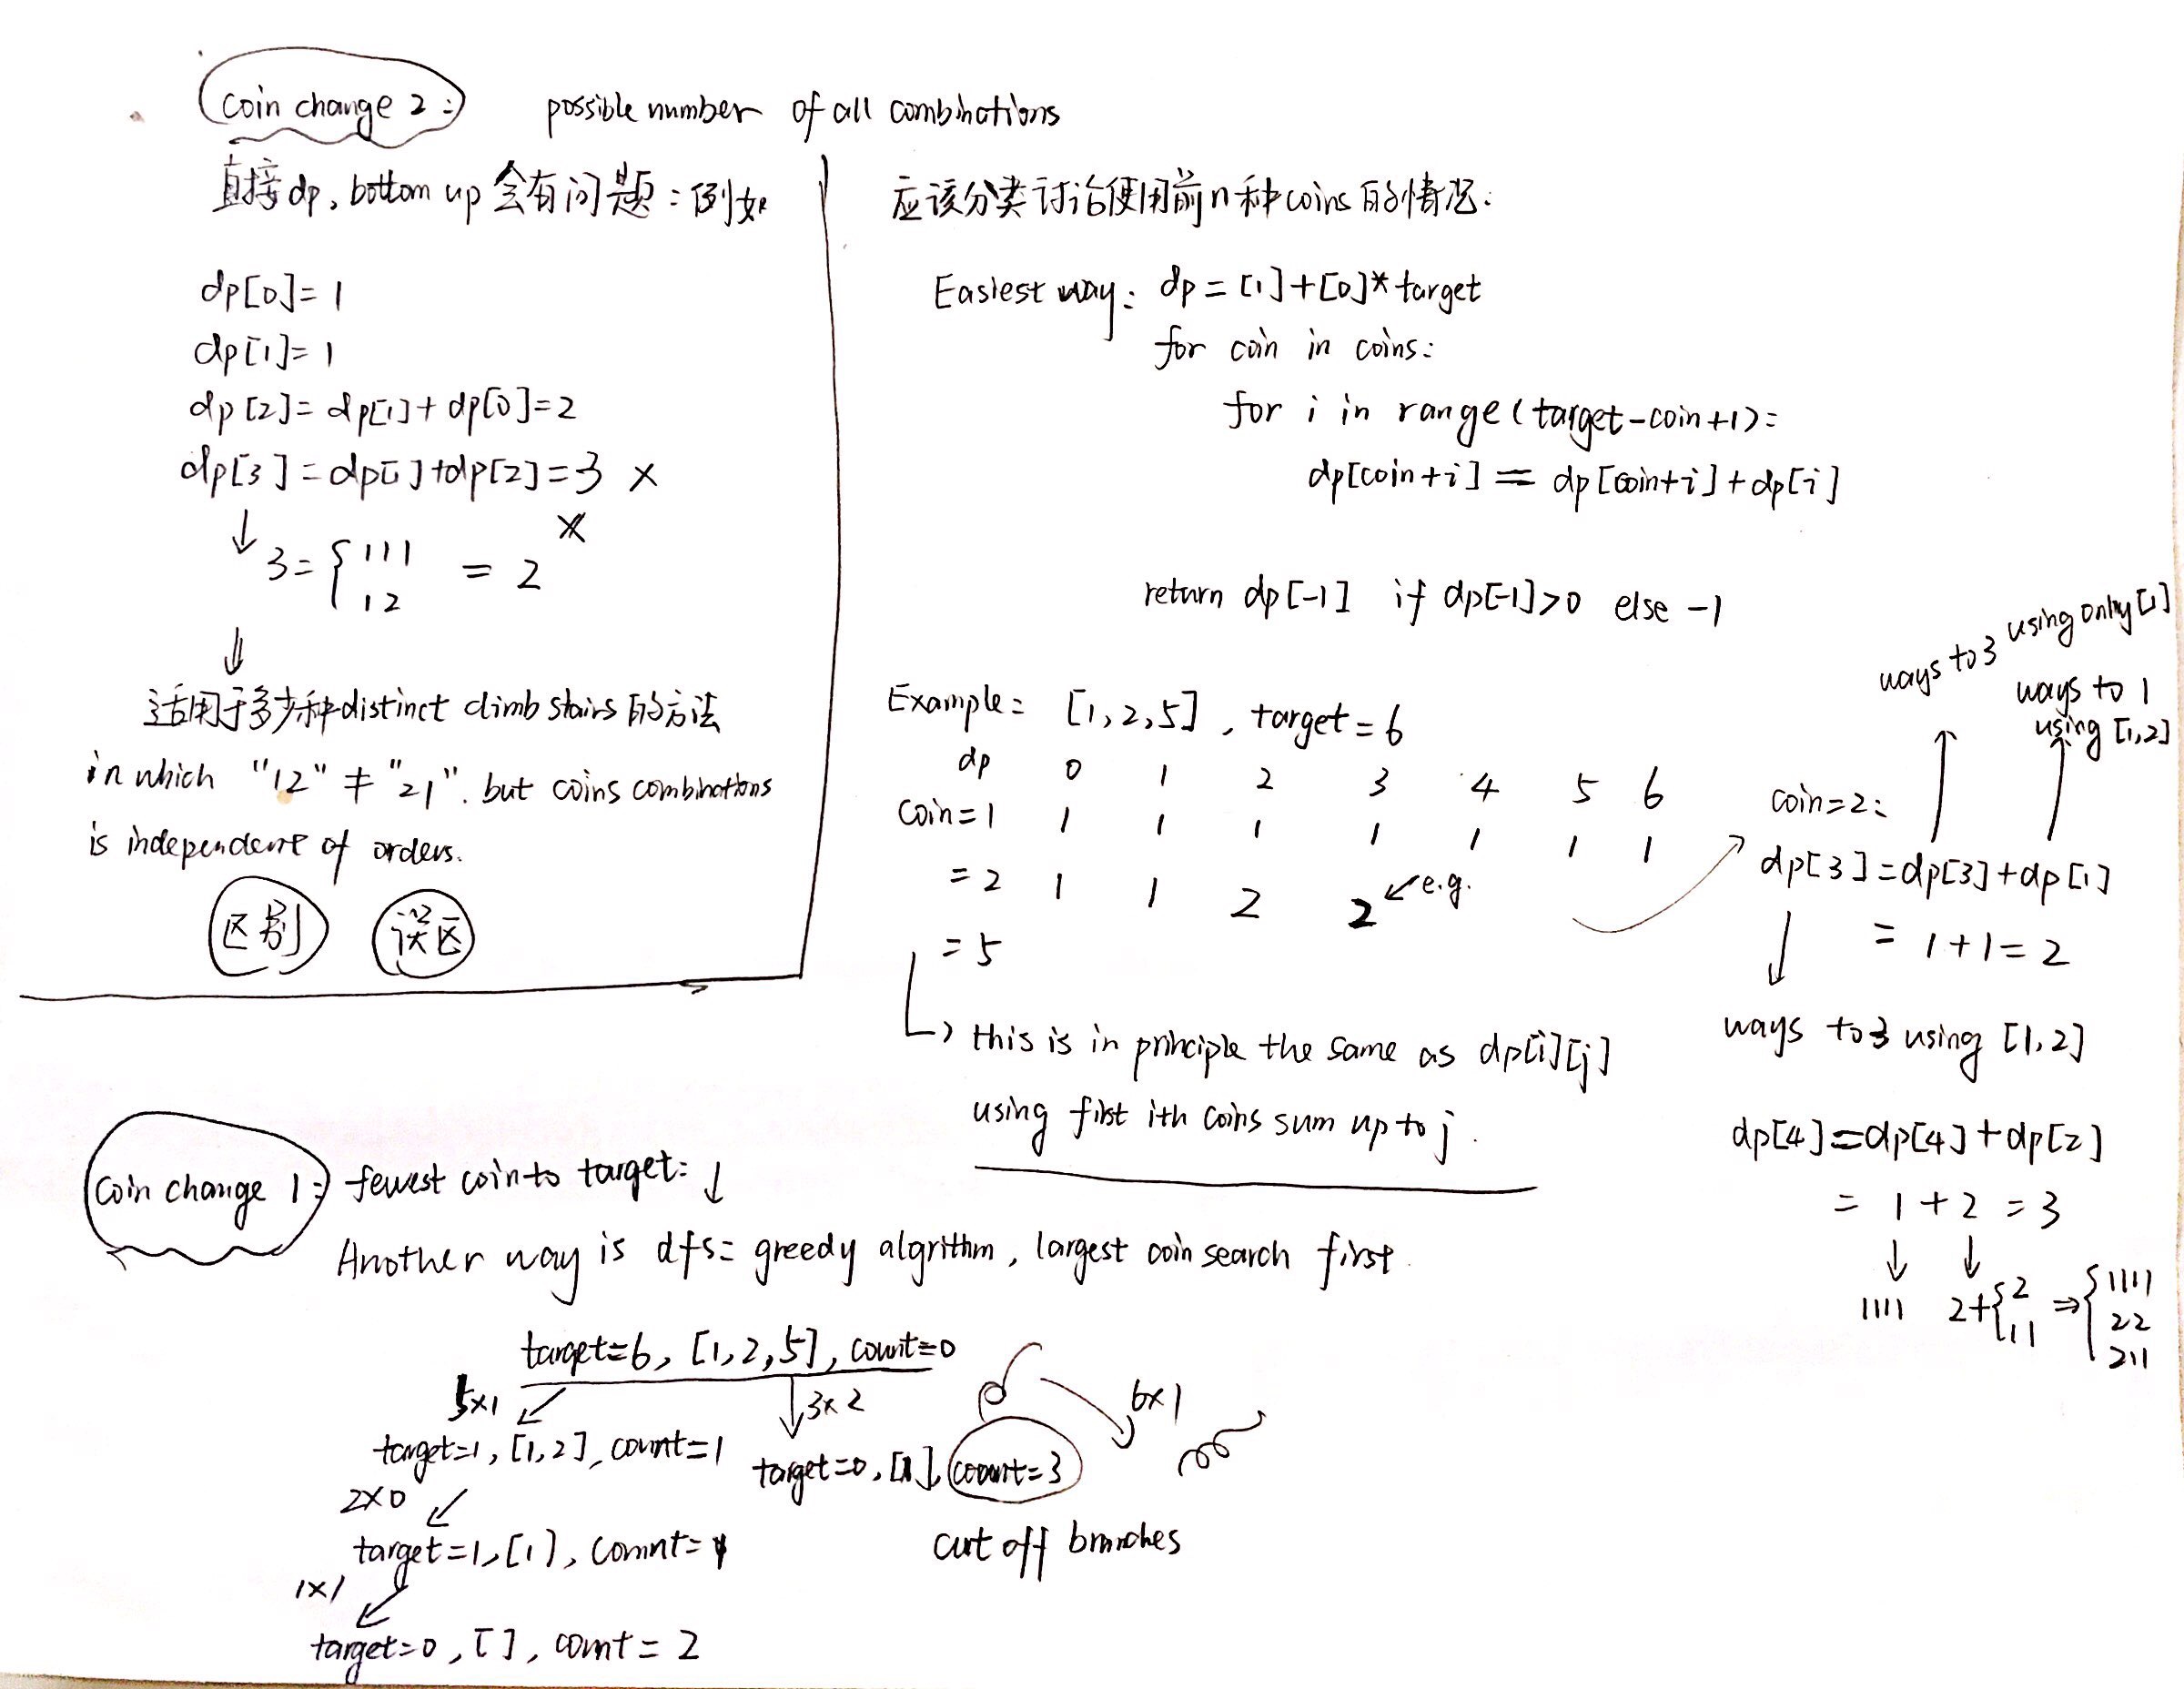 coin change 2: possible number of all combinations
直接dp, bottom up 会有问题: 例如
dp[0]=1
dp[1]=1
dp[2]=dp[1]+dp[0]=2
dp[3]=dp[1]+dp[2]=3 ×
×
3={111
12
= 2
适用于多少种distinct climb stairs的方法
in which "12" ≠ "21". but coins combinations
is independent of orders.
区别 误区
应该分类讨论使用前n种coins的情况:
Easiest way: dp=[1]+[0]*target
for coin in coins:
for i in range(target-coin+1):
dp[coin+i] = dp[coin+i]+dp[i]
return dp[-1] if dp[-1]>0 else -1
Example: [1,2,5], target=6
dp 0 1 2 3 4 5 6
coin=1 1 1 1 1 1 1 1
=2 1 1 2 2 ↙e.g.
=5
this is in principle the same as dp[i][j]
using first ith coins sum up to j.
ways to 3 using only [1]
ways to 1
using [1,2]
coin=2:
dp[3]=dp[3]+dp[1]
= 1+1=2
ways to 3 using [1,2]
dp[4]=dp[4]+dp[2]
= 1+2=3
↓ ↓
1111 2+{2 ⇒{1111
11 22
211
coin change 1: fewest coin to target: ↓
Another way is dfs: greedy algrithm, largest coin search first.
target=6, [1,2,5], count=0
5×1 ↙ ↓3×2 6×1
target=1, [1,2], count=1 target=0, [1], count=3
2×0 ↙
target=1, [1], count=1 cut off branches
1×1 ↙
target=0, [], count=2